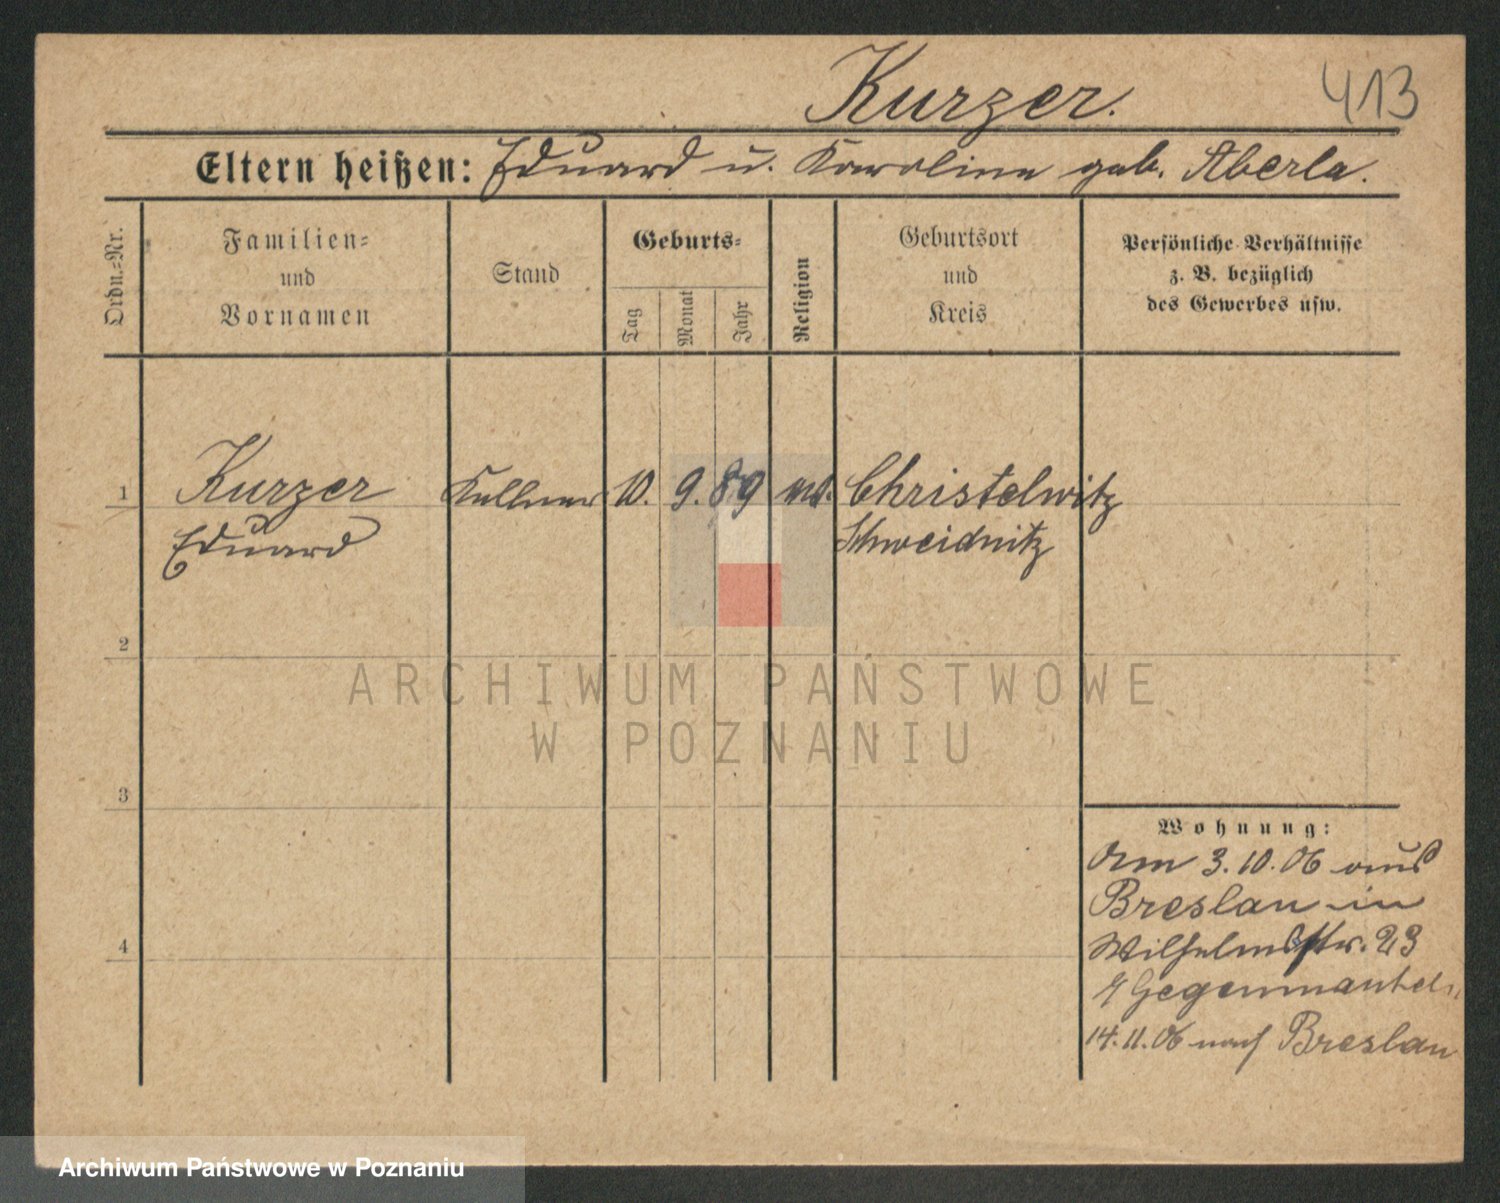 Kurzer.
413
Eltern heißen: Eduard u. Karoline geb. Aberle.
Ordn.=Nr.
Familien=
und
Vornamen
Stand
Geburts=
Tag
Monat
Jahr
Religion
Geburtsort
und
Kreis
Persönliche Verhältnisse
z. B. bezüglich
des Gewerbes usw.
1
Kurzer
Eduard
Kellner
10.
9.
89
Christelwitz
Schweidnitz
2
ARCHIWUM PAŃSTWOWE
W POZNANIU
3
Wohnung:
Am 3.10.06 aus
Breslau in
Wilhelmstr. 23
14.11.06 nach Breslau
4
Archiwum Państwowe w Poznaniu